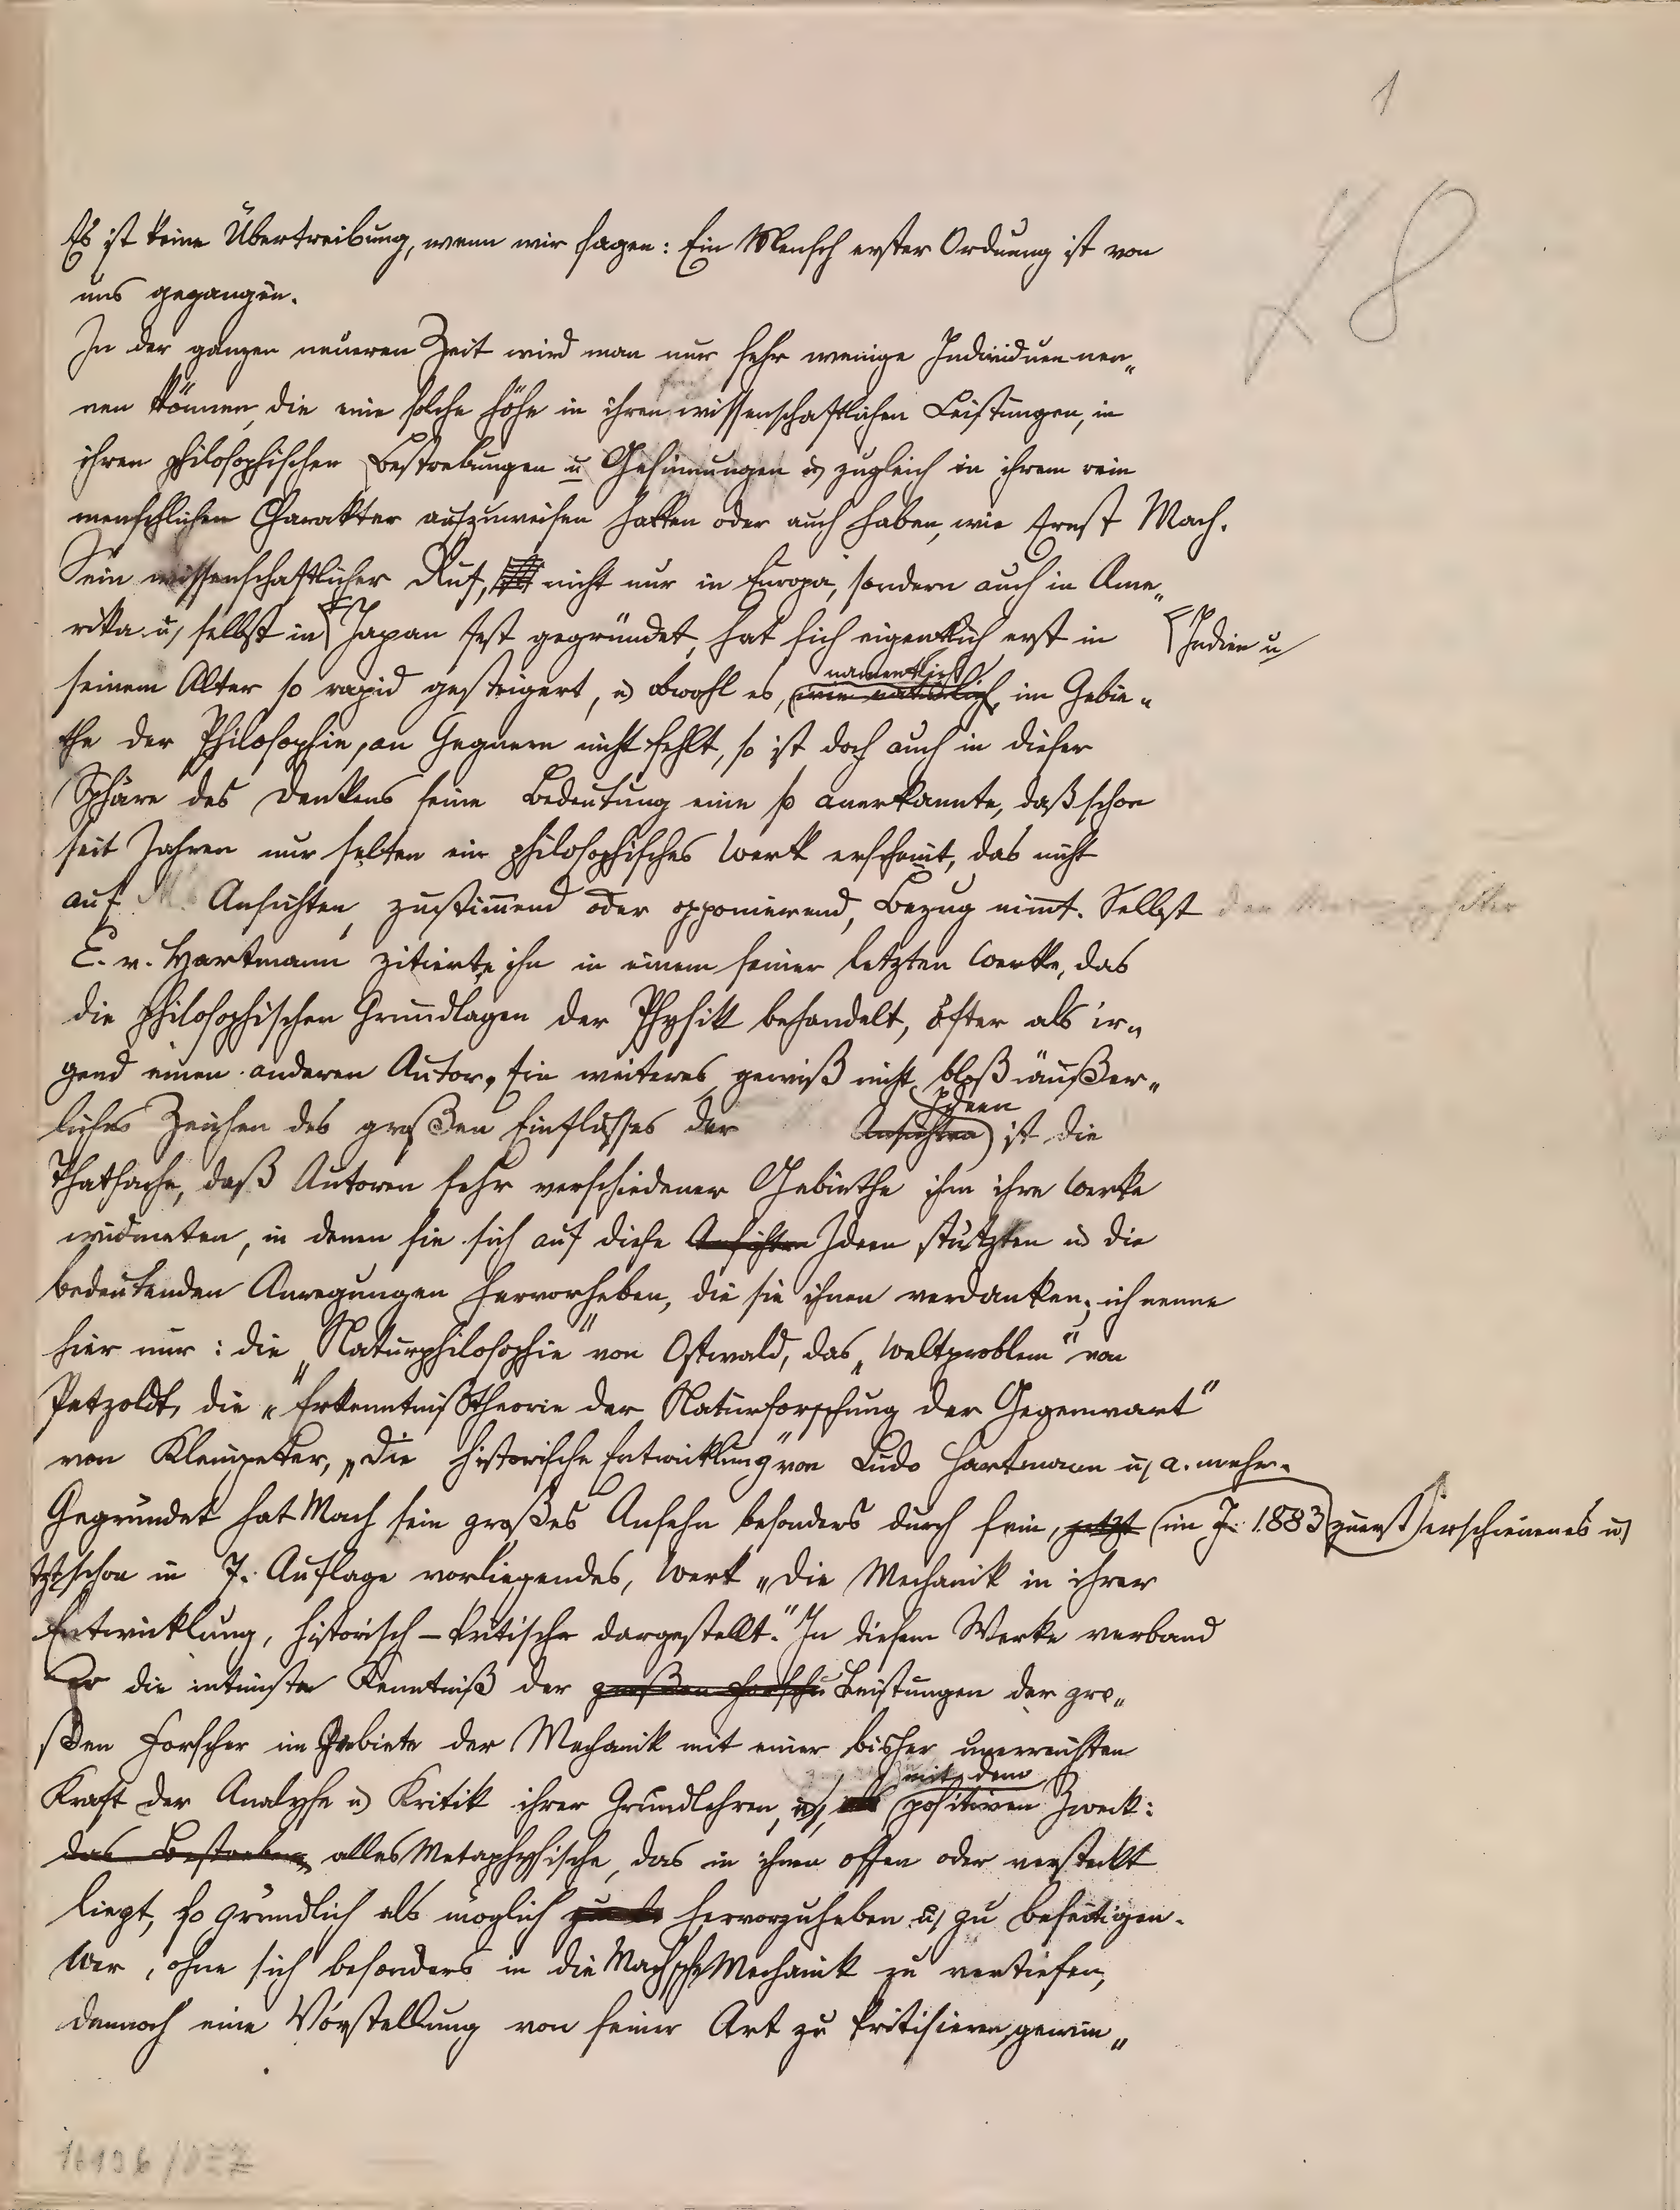 1
28
Es ist keine Übertreibung, wenn wir sagen: Ein Mensch erster Ordnung ist von
uns gegangen.
In der ganzen neueren Zeit wird man nur sehr wenige Individuen nen„
nen können, die eine solche Höhe in ihren wissenschaftlichen Leistungen, in
ihren philosophischen Bestrebungen u Gesinnungen u zugleich in ihrem rein
menschlichen Charakter aufzuweisen hatten oder auch haben, wie Ernst Mach.
Sein wissenschaftlicher Ruf, nicht nur in Europa, sondern auch in Ame„
rika u, selbst in Indien u Japan fest gegründet, hat sich eigentlich erst in
seinem Alter so rapid gesteigert, u obwohl es, wie natürlich namentlich im Gebie„
the der Philosophie, an Gegnern nicht fehlt, so ist doch auch in dieser
Sphäre des Denkens seine Bedeutung eine so anerkannte, daß schon
seit Jahren nur selten ein philosophisches Werk erscheint, das nicht
auf M's Ansichten, zustimmend oder opponierend, Bezug nimt. Selbst
E. v. Hartmann zitierte ihn in einem seiner letzten Werke, das
die philosophischen Grundlagen der Physik behandelt, öfter als ir„
gend einen anderen Autor. Ein weiteres gewiß nicht bloß äußer„
liches Zeichen des großen Einflusses der Ansichten Ideen ist die
Thatsache, daß Autoren sehr verschiedener Gebiethe ihm ihre Werke
widmeten, in denen sie sich auf diese Ansichten Ideen stützten u die
bedeutenden Anregungen hervorheben, die sie ihnen verdanken; ich nenne
hier nur: die „Naturphilosophie" von Ostwald, das „Weltproblem" von
Petzoldt, die „Erkenntnißtheorie der Naturforschung der Gegenwart"
von Kleinpeter, „Die historische Entwicklung" von Ludo Hartmann u, a. mehr.
Gegründet hat Mach sein großes Ansehn besonders durch sein, jetzt im J. 1883 zuerst erschienenes u
jtzt schon in 7. Auflage vorliegendes, Werk „Die Mechanik in ihrer
Entwicklung, historisch-kritisch dargestellt." In diesem Werke verband
Er die intimste Kenntniß der großen Forscher Leistungen der gro„
ßen Forscher im Gebiete der Mechanik mit einer bisher unerreichten
Kraft der Analyse u Kritik ihrer Grundlehren, u, mit dem positiven Zweck:
das Bestreben, alles Metaphysische, das in ihnen offen oder versteckt
liegt, so gründlich als möglich hervorzuheben u, zu beseitigen.
Wer, ohne sich besonders in die Machsche Mechanik zu vertiefen,
dennoch eine Vorstellung von seiner Art zu kritisieren, gewin„